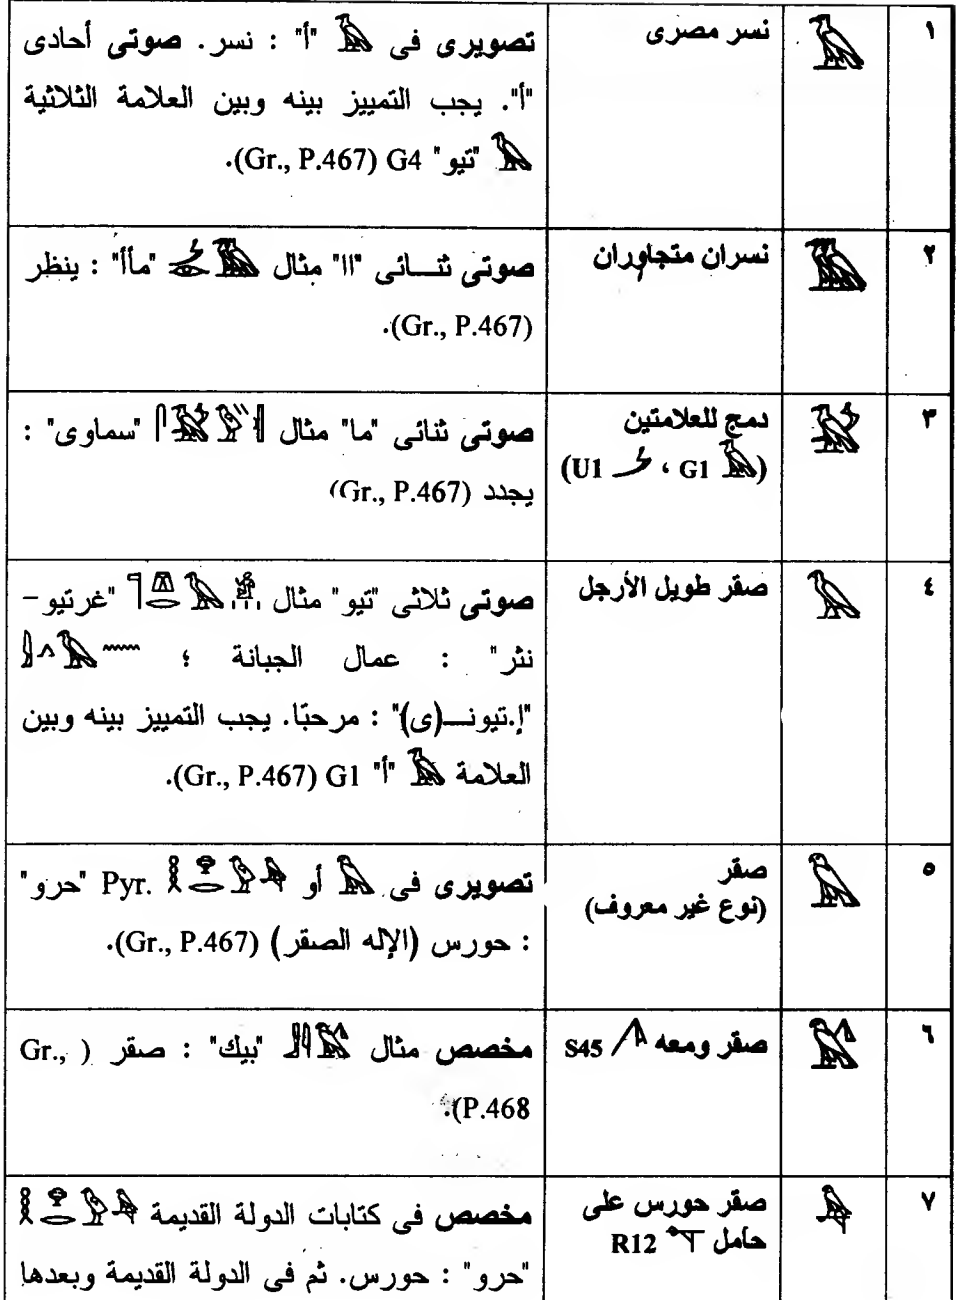 ١ نسر مصرى تصويرى فى 𓄿 "أ" : نسر. صوتى أحادى
"أ". يجب التمييز بينه وبين العلامة الثلاثية
"تيو" G4 (Gr., P.467).
٢ نسران متجاوران صوتى ثنـــائى "اا" مثال "مأأ" : ينظر
(Gr., P.467).
٣ دمج للعلامتين صوتى ثنائى "ما" مثال "سماوى" :
(G1 ، U1) يجدد (Gr., P.467)
٤ صقر طويل الأرجل صوتى ثلاثى "تيو" مثال "غرتيو –
نثر" : عمال الجبانة ؛
"إ.تيونـــ(ى)" : مرحبًا. يجب التمييز بينه وبين
العلامة "أ" G1 (Gr., P.467).
٥ صقر تصويرى فى أو Pyr. "حرو"
(نوع غير معروف) : حورس (الإله الصقر) (Gr., P.467).
٦ صقر ومعه S45 مخصص مثال "بيك" : صقر ( Gr.,
P.468).
٧ صقر حورس على مخصص فى كتابات الدولة القديمة
حامل R12 "حرو" : حورس. ثم فى الدولة القديمة وبعدها